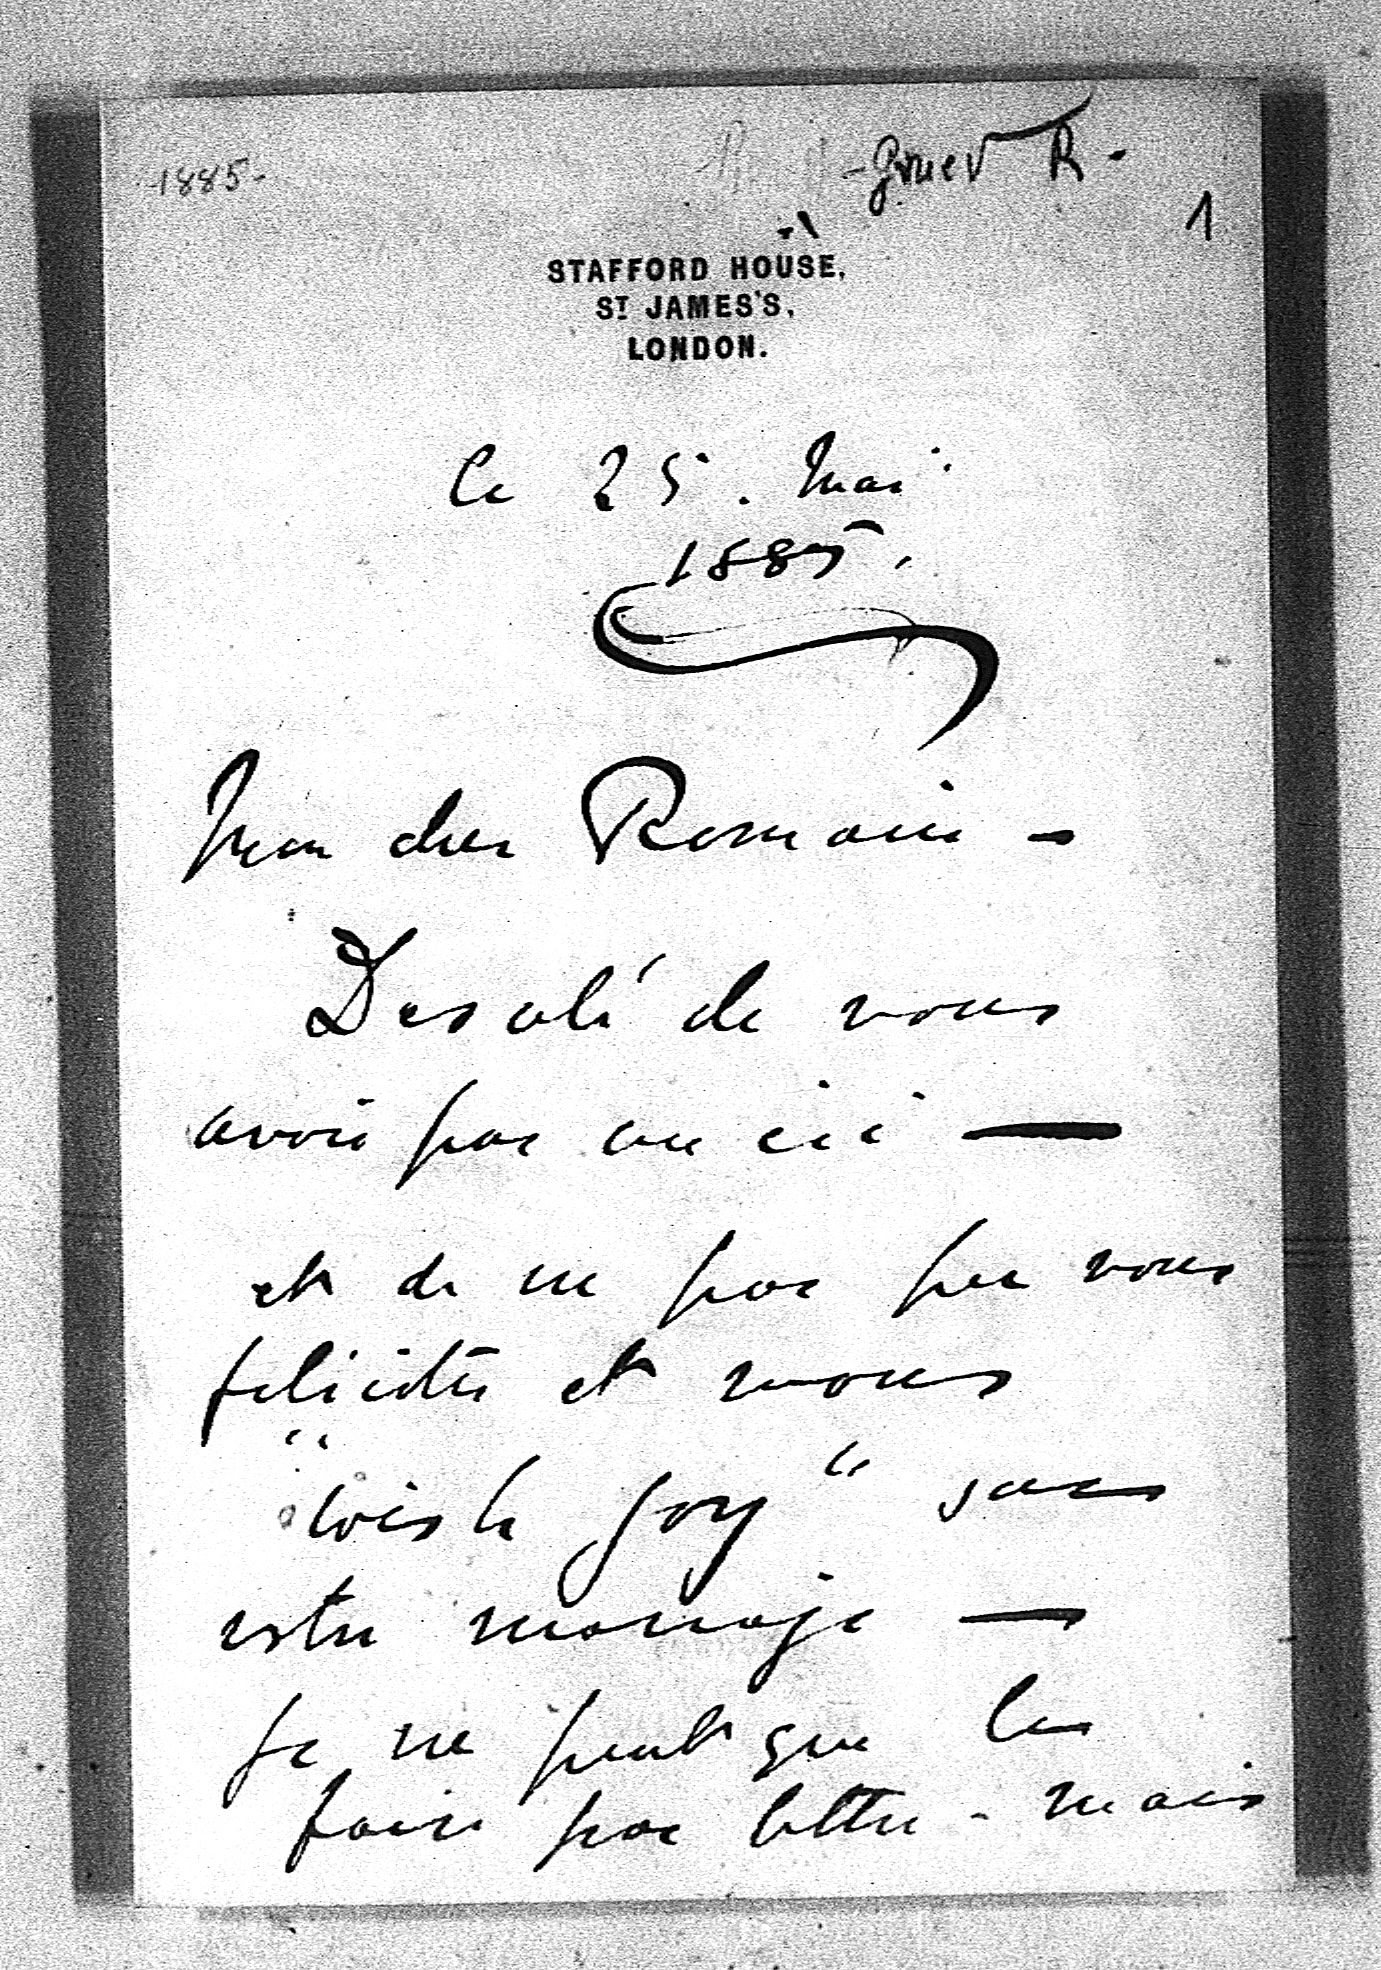 -1885-
- Gower R -
1
STAFFORD HOUSE,
ST JAMES'S,
LONDON.
Le 25. Mai
1885.
Mon cher Romain -
Desolé de vous
avoir pas vu ici —
et de ne pas pu vous
feliciter et vous
"wish joy" sur
votre mariage —
Je ne peut que les
faire par lettre - mais